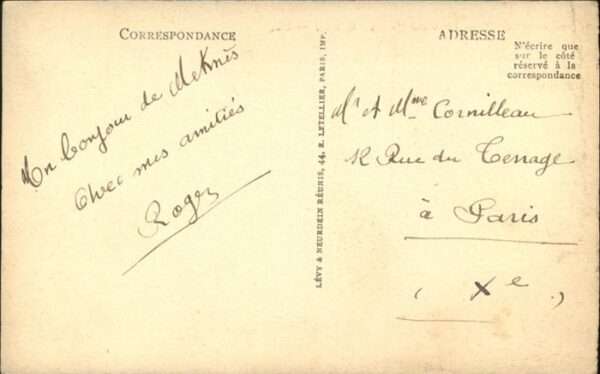 CORRESPONDANCE
Un bonjour de Meknès
Avec mes amitiés
Roger
LÉVY & NEURDEIN RÉUNIS, 44, R. LETELLIER, PARIS, IMP.
ADRESSE
N'écrire que
sur le côté
réservé à la
correspondance
Mr et Mme Cornilleau
12 Rue du Terrage
à Paris
( Xe )